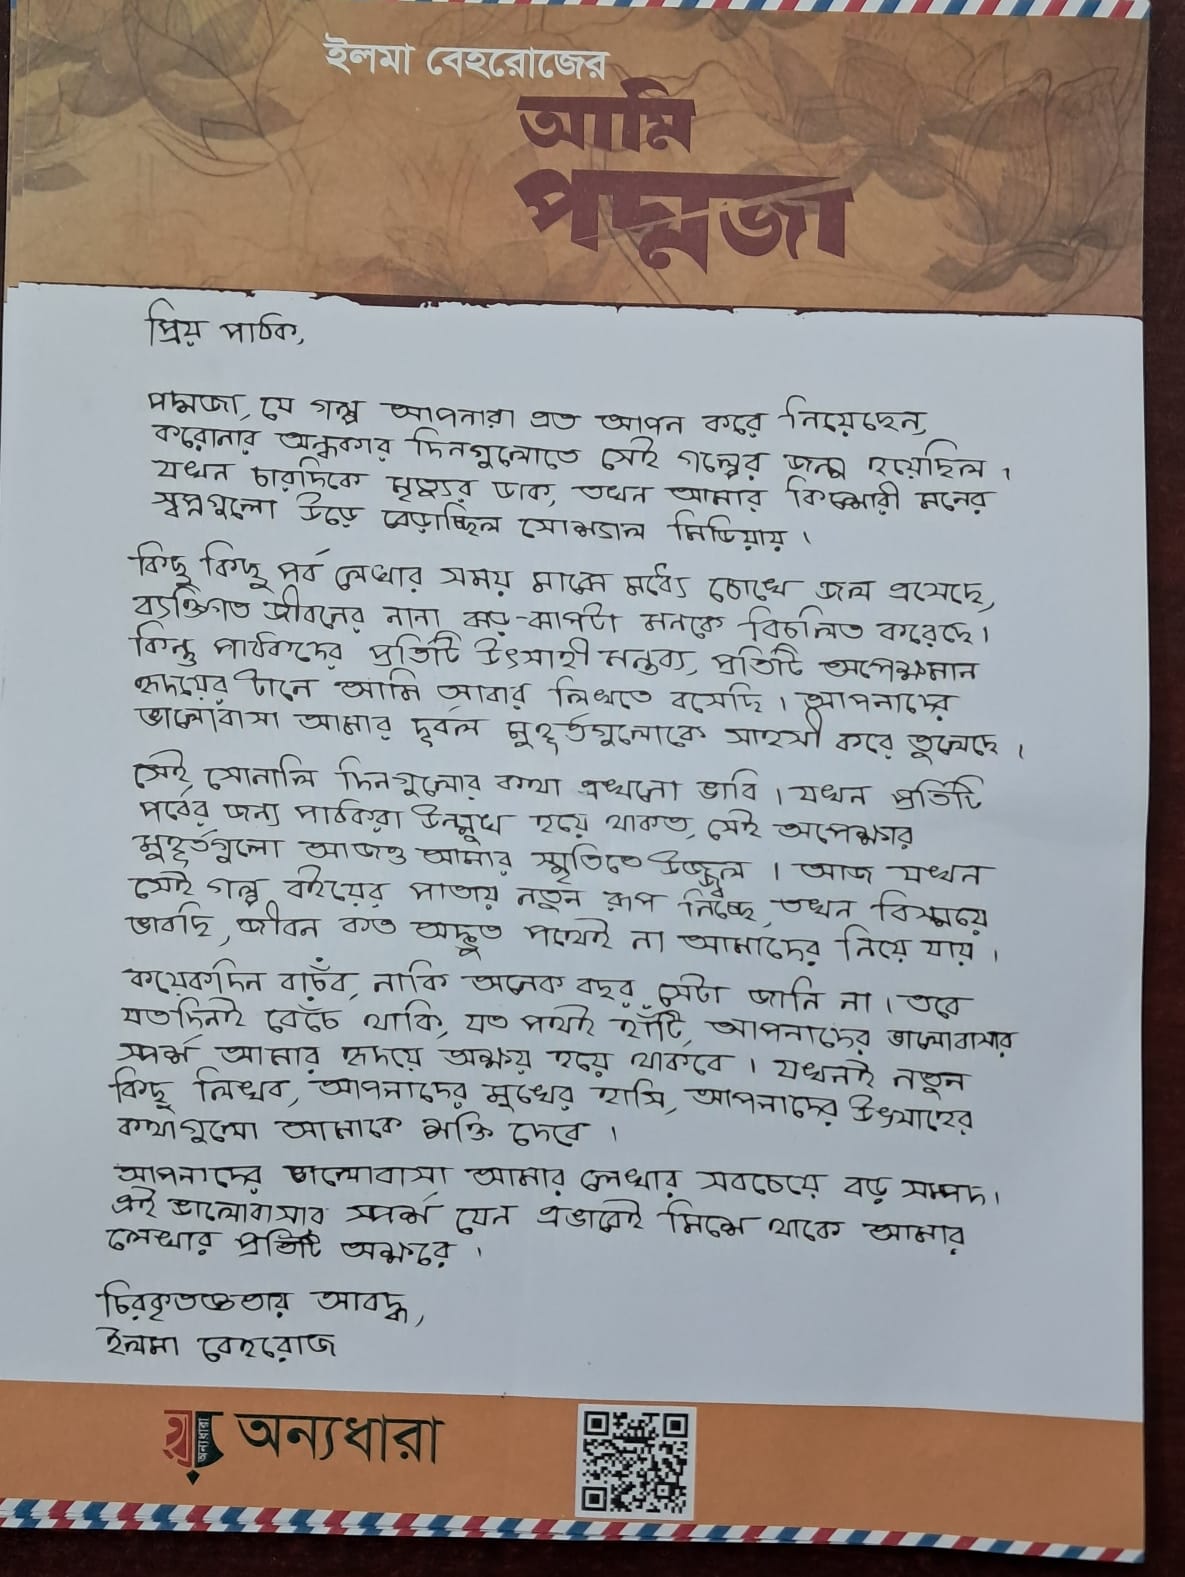 ইলমা বেহরোজের
আমি
পদ্মজা
প্রিয় পাঠক,
পদ্মজা, যে গল্প আপনারা এত আপন করে নিয়েছেন,
করোনার অন্ধকার দিনগুলোতে সেই গল্পের জন্ম হয়েছিল।
যখন চারদিকে মৃত্যুর ডাক, তখন আমার কিশোরী মনের
স্বপ্নগুলো উড়ে বেড়াচ্ছিল সোশ্যাল মিডিয়ায়।
কিছু কিছু পর্ব লেখার সময় মাঝে মধ্যে চোখে জল এসেছে,
ব্যক্তিগত জীবনের নানা ঝড়-ঝাপটা মনকে বিচলিত করেছে।
কিন্তু পাঠকদের প্রতিটি উৎসাহী মন্তব্য, প্রতিটি অপেক্ষমান
হৃদয়ের টানে আমি আবার লিখতে বসেছি। আপনাদের
ভালোবাসা আমার দুর্বল মুহূর্তগুলোকে সাহসী করে তুলেছে।
সেই সোনালি দিনগুলোর কথা এখনো ভাবি। যখন প্রতিটি
পর্বের জন্য পাঠকরা উন্মুখ হয়ে থাকত, সেই অপেক্ষার
মুহূর্তগুলো আজও আমার স্মৃতিতে উজ্জ্বল। আজ যখন
সেই গল্প বইয়ের পাতায় নতুন রূপ নিচ্ছে, তখন বিস্ময়ে
ভাবছি, জীবন কত অদ্ভুত পথেই না আমাদের নিয়ে যায়।
কয়েকদিন বাঁচব, নাকি অনেক বছর, সেটা জানি না। তবে
যতদিনই বেঁচে থাকি, যত পথেই হাঁটি, আপনাদের ভালোবাসার
স্পর্শ আমার হৃদয়ে অক্ষয় হয়ে থাকবে। যখনই নতুন
কিছু লিখব, আপনাদের মুখের হাসি, আপনাদের উৎসাহের
কথাগুলো আমাকে শক্তি দেবে।
আপনাদের ভালোবাসা আমার লেখার সবচেয়ে বড় সম্পদ।
এই ভালোবাসার স্পর্শ যেন এভাবেই মিশে থাকে আমার
লেখার প্রতিটি অক্ষরে।
চিরকৃতজ্ঞতায় আবদ্ধ,
ইলমা বেহরোজ
অন্যধারা
অন্যধারা